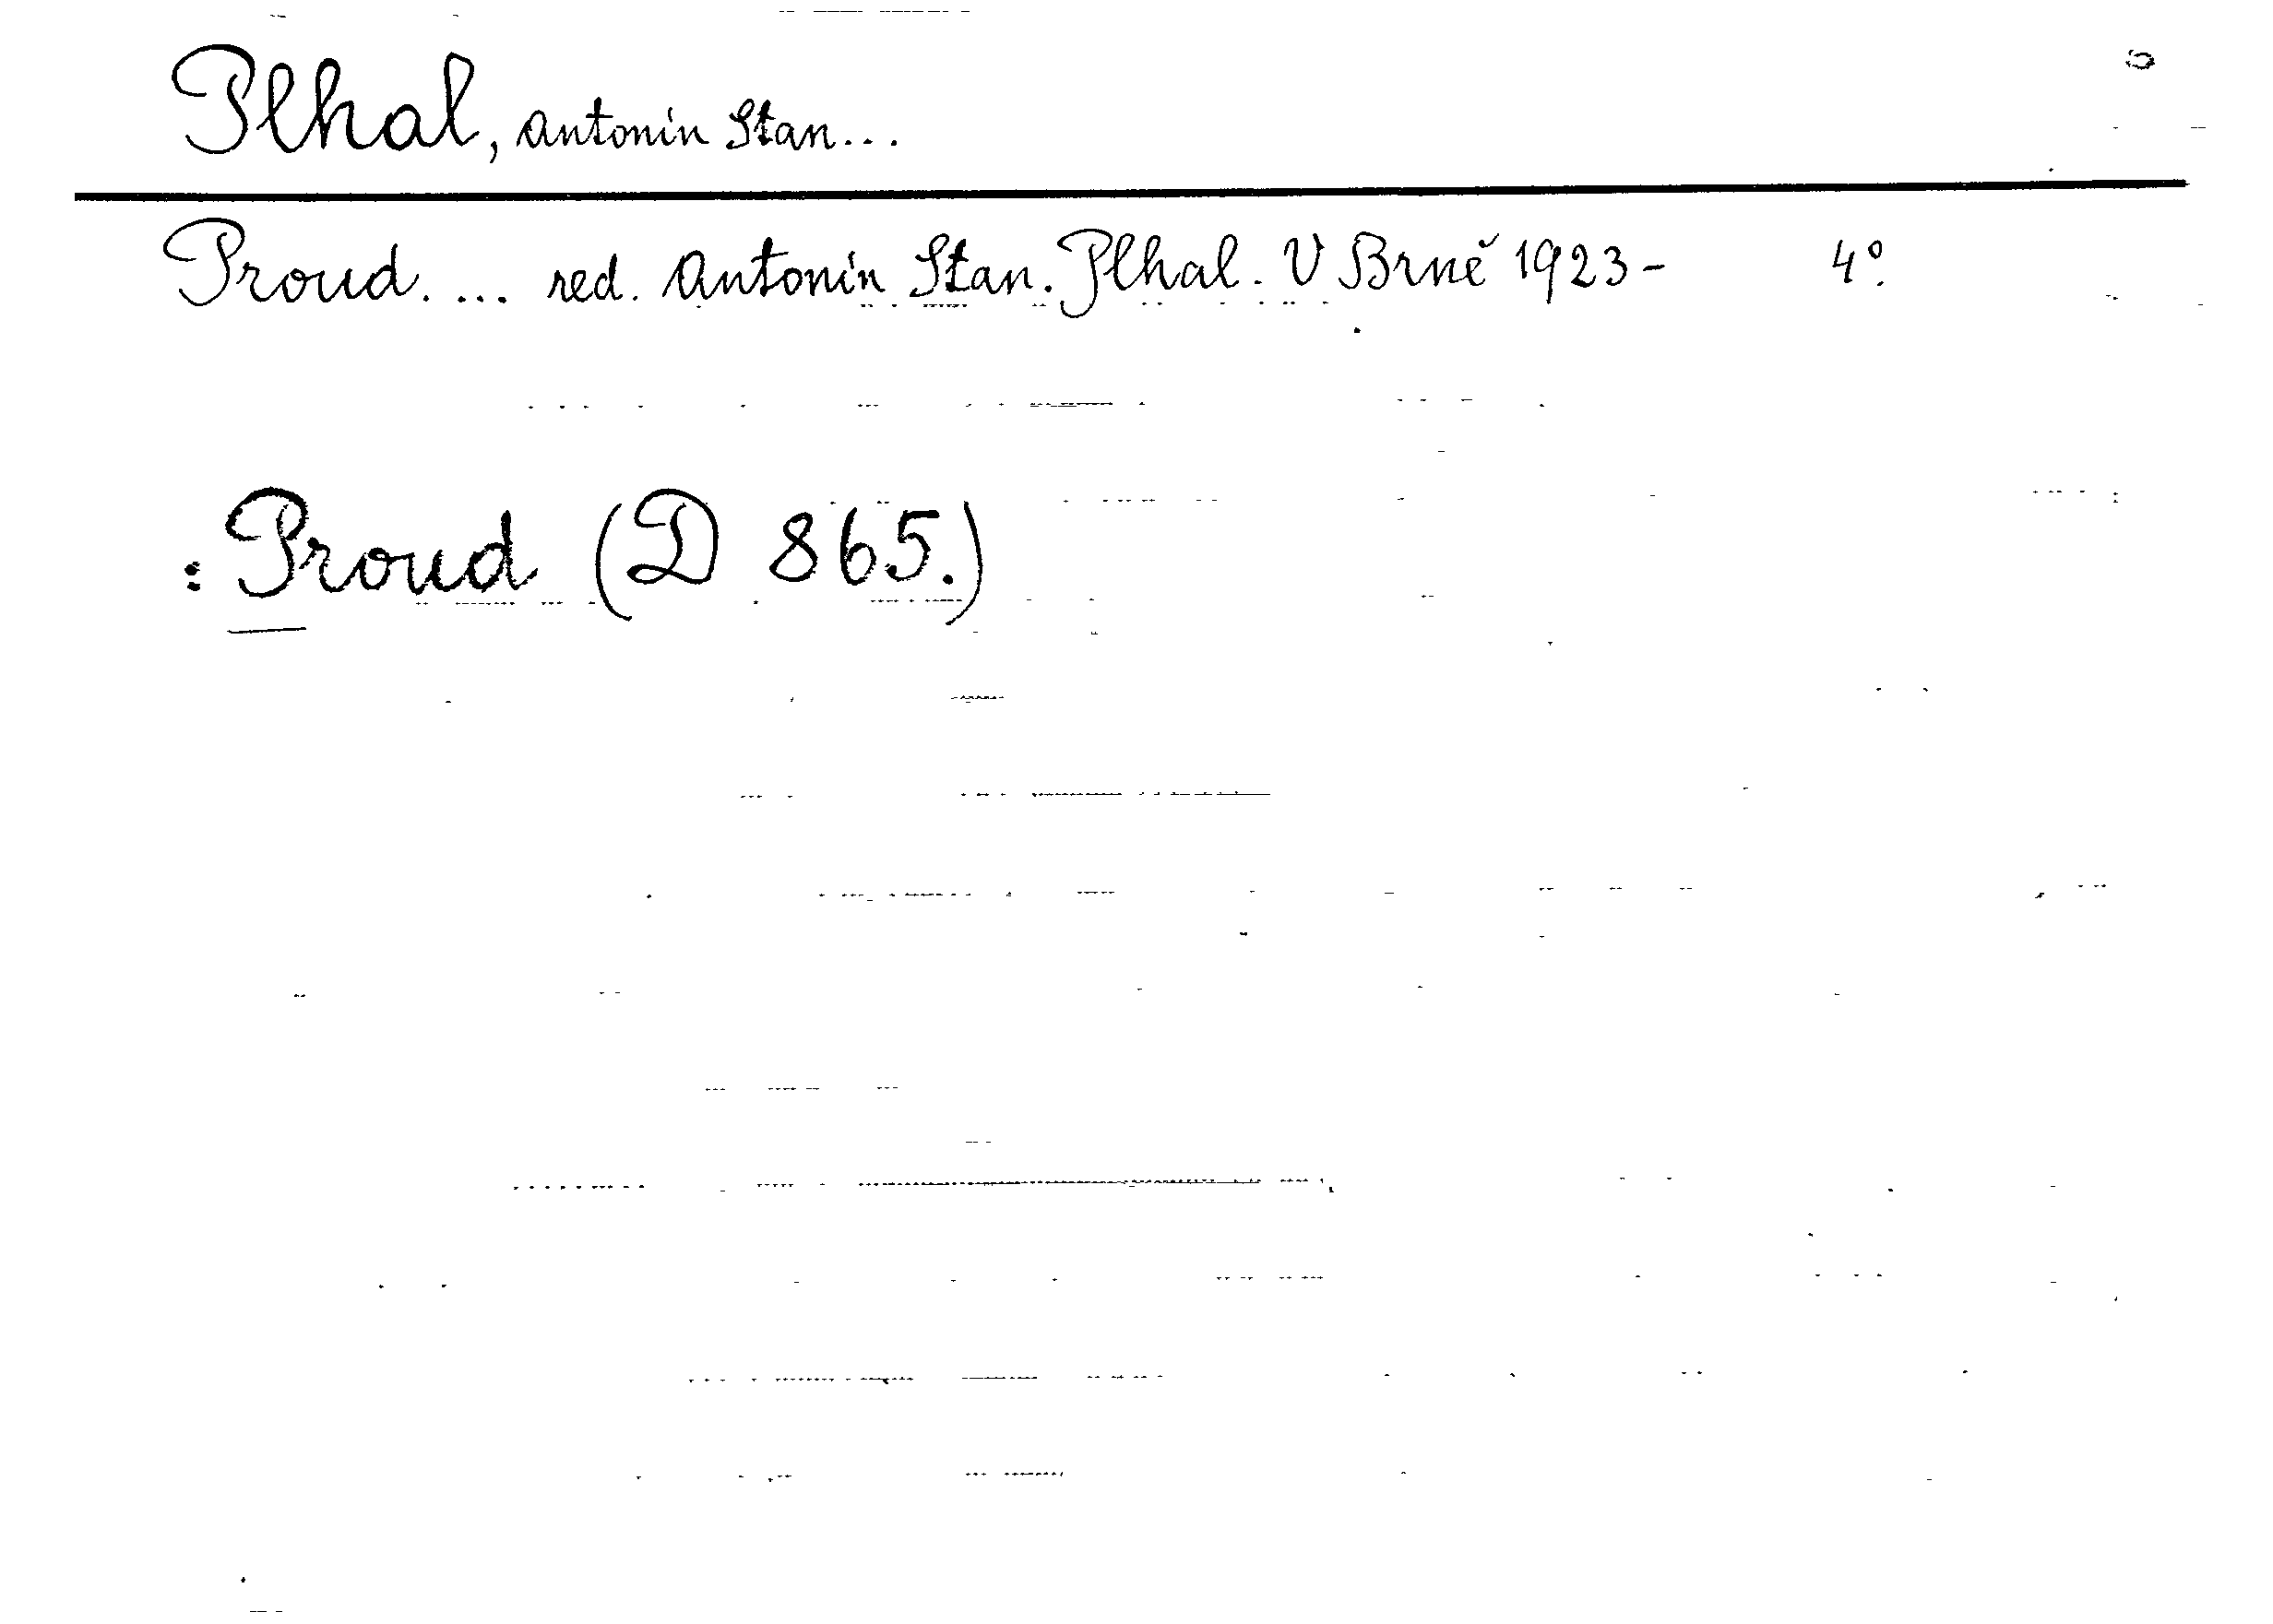 Plhal, Antonín Stan...
Proud. ... red. Antonín Stan. Plhal. V Brně 1923- 4°.
: Proud (D 865.)